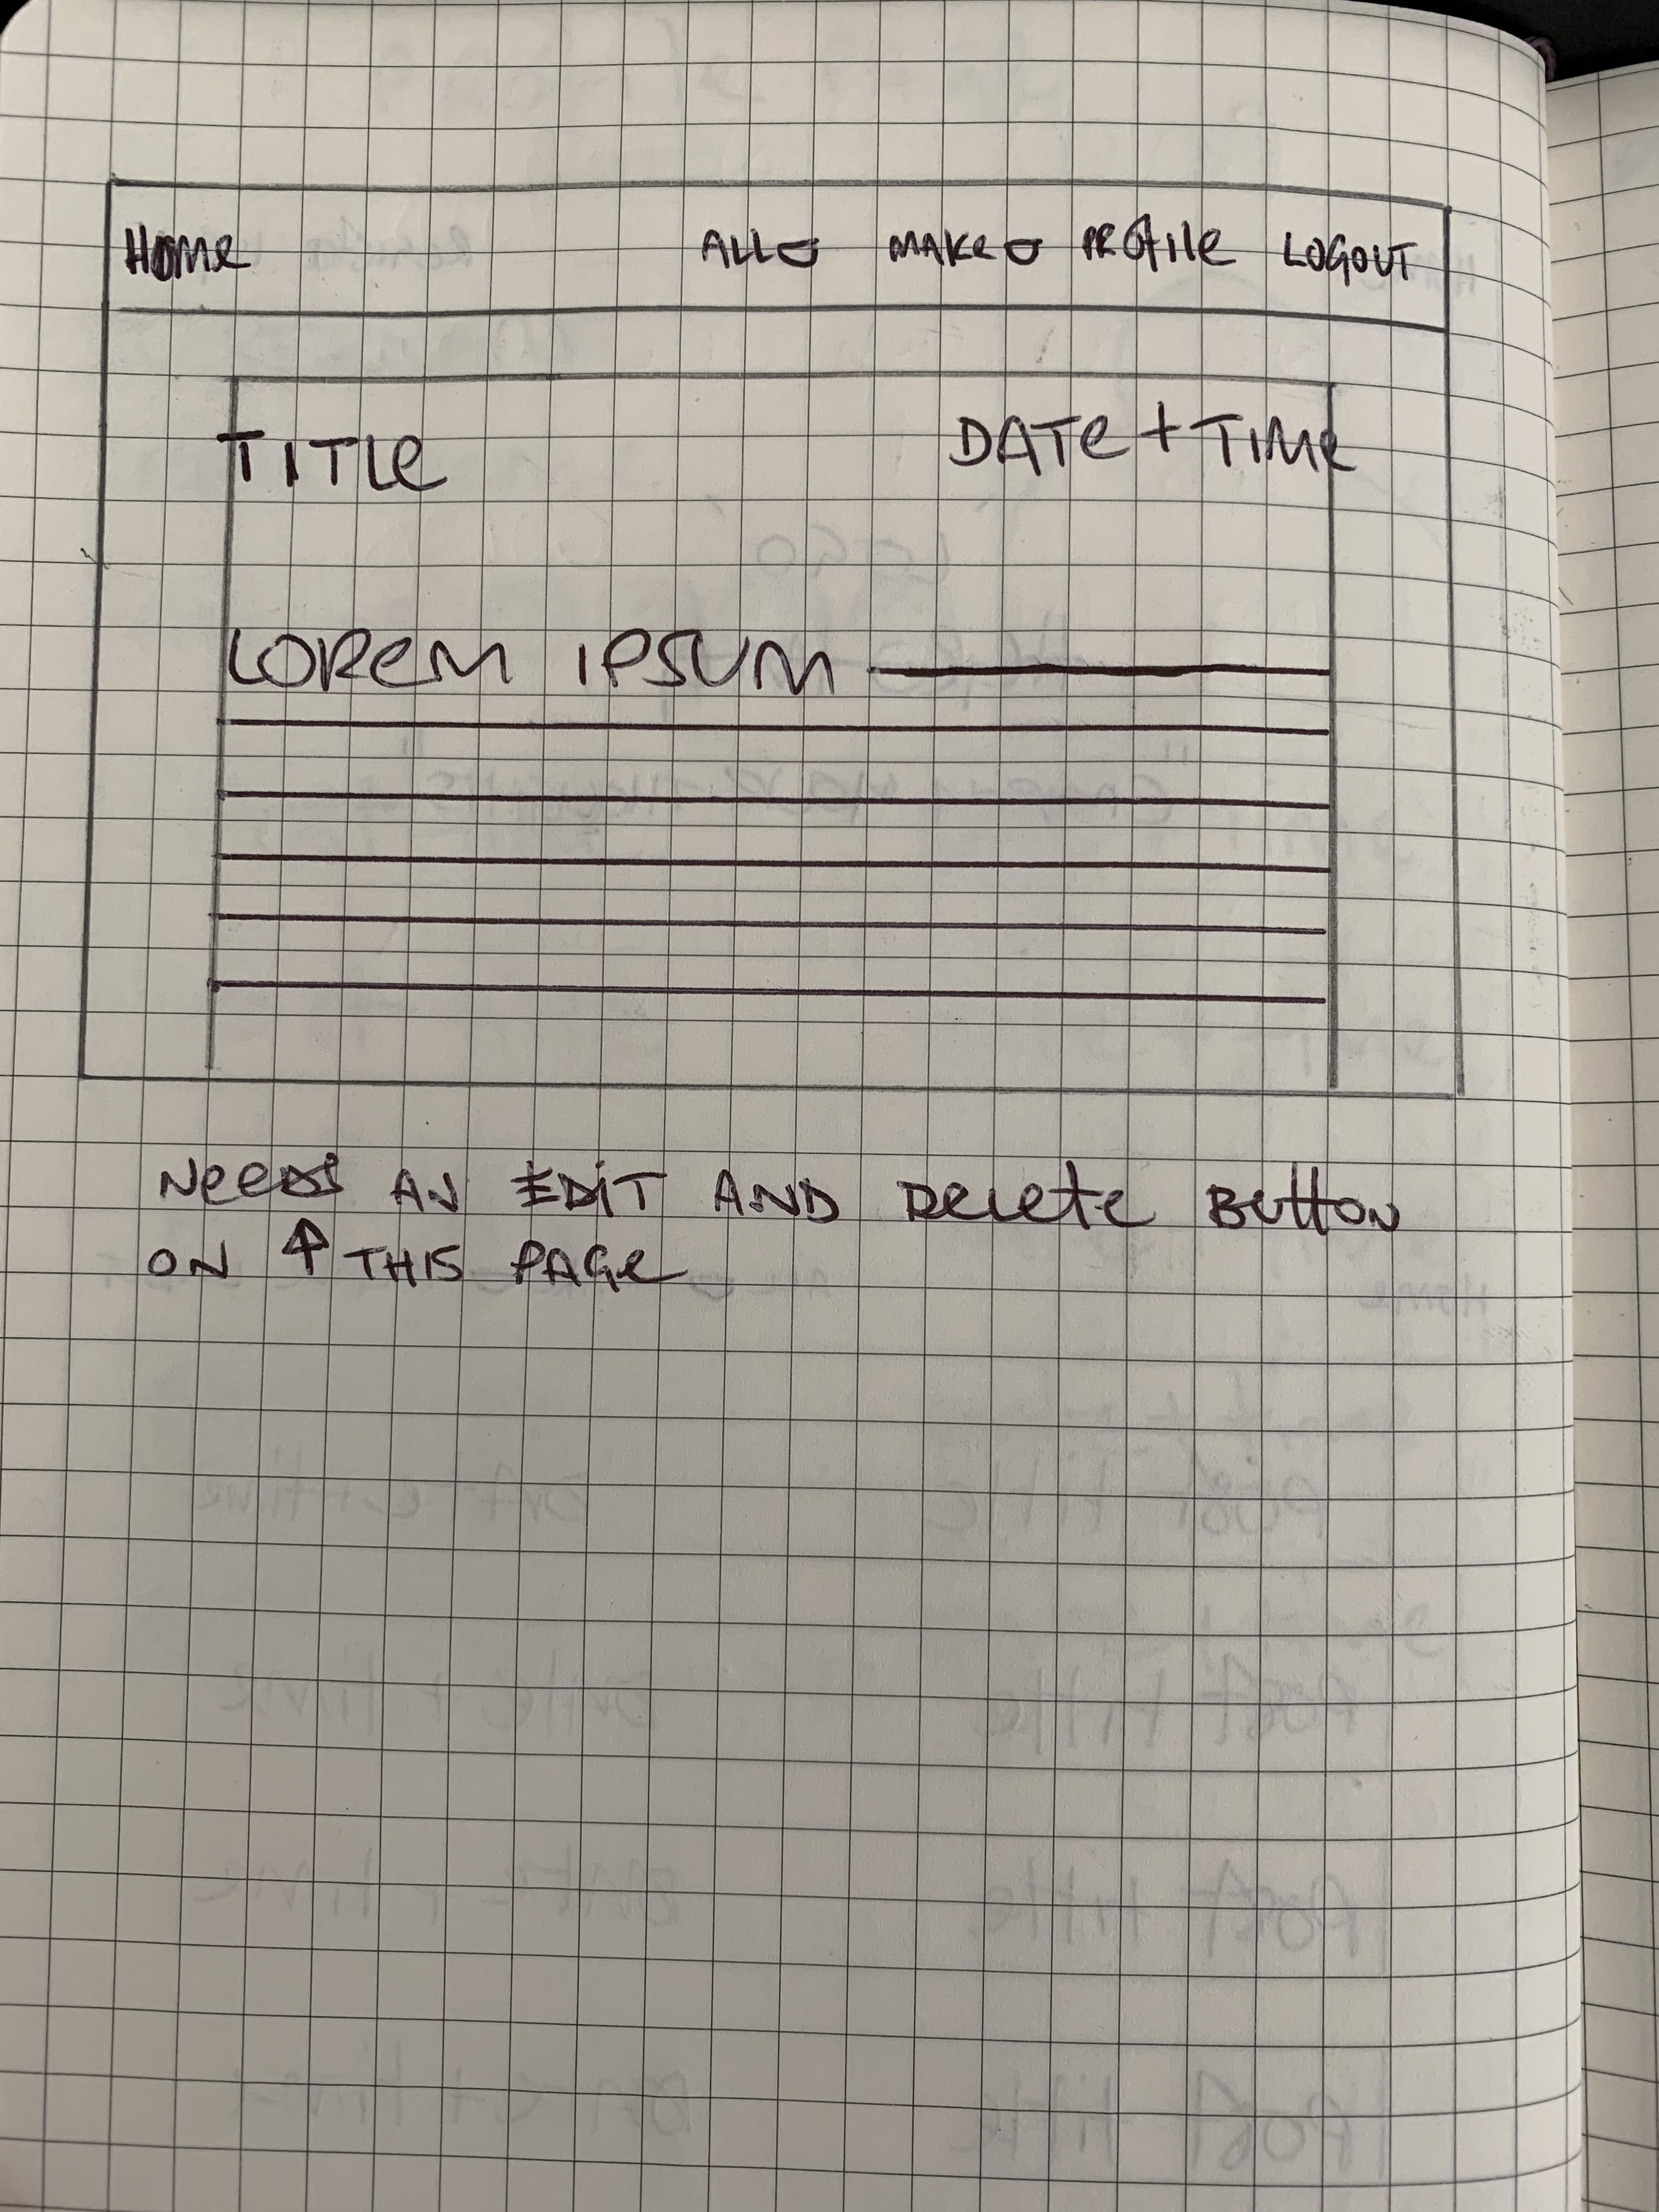 Home ALL MAKE PROfile LOGOUT
TITLe DATe + TIMe
LOReM IPSUM
NeeDS AN EDiT AND DeLete Button
ON ↑ THIS PAGe